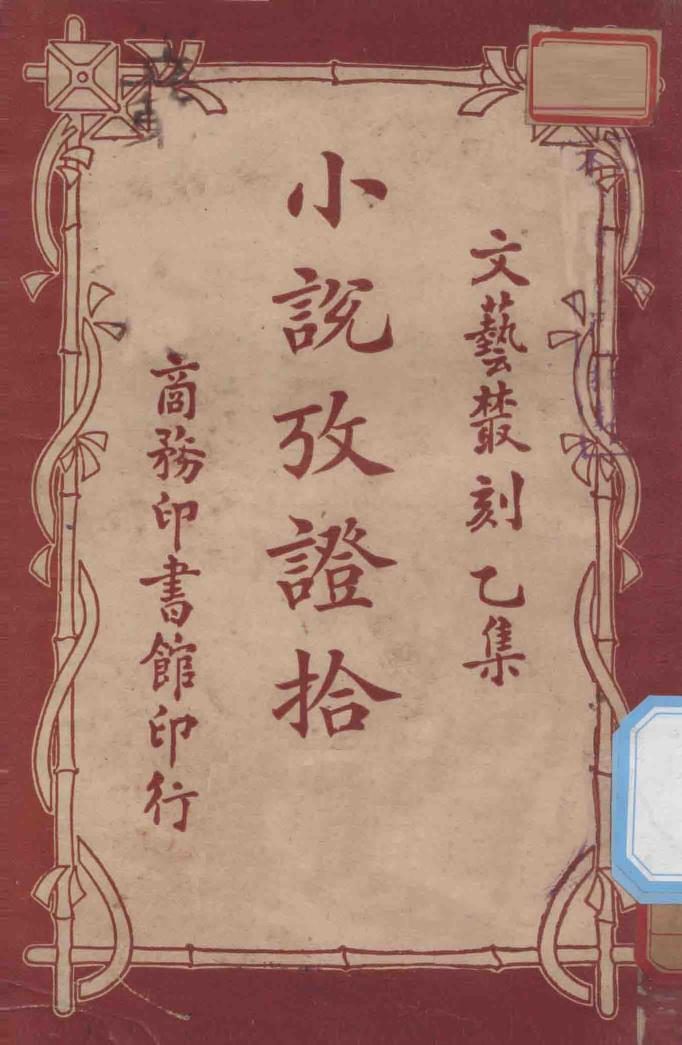 文藝叢刻乙集
小說攷證拾
商務印書館印行